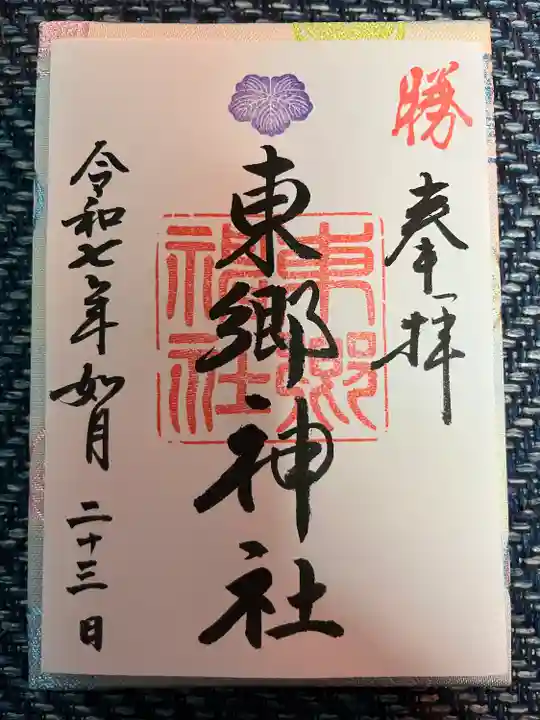 勝
奉拝
東郷神社
東郷神社
令和七年如月二十三日